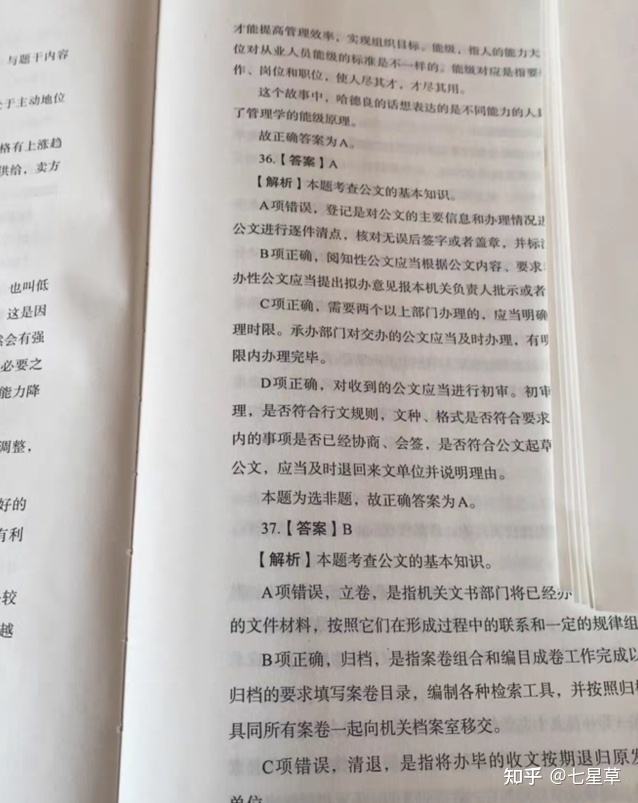 与题干内容
处于主动地位
格有上涨趋
供给，卖方
也叫低
这是因
然会有强
必要之
能力降
调整，
好的
有利
较
越
才能提高管理效率，实现组织目标。能级，指人的能力大
位对从业人员能级的标准是不一样的。能级对应是指要
作、岗位和职位，使人尽其才，才尽其用。
这个故事中，哈德良的话想表达的是不同能力的人
了管理学的能级原理。
故正确答案为A。
36.【答案】A
【解析】本题考查公文的基本知识。
A项错误，登记是对公文的主要信息和办理情况进
公文进行逐件清点，核对无误后签字或者盖章，并标注
B项正确，阅知性公文应当根据公文内容、要求
办性公文应当提出拟办意见报本机关负责人批示或者
C项正确，需要两个以上部门办理的，应当明确
理时限。承办部门对交办的公文应当及时办理，有明
限内办理完毕。
D项正确，对收到的公文应当进行初审。初审
理，是否符合行文规则，文种、格式是否符合要求
内的事项是否已经协商、会签，是否符合公文起草
公文，应当及时退回来文单位并说明理由。
本题为选非题，故正确答案为A。
37.【答案】B
【解析】本题考查公文的基本知识。
A项错误，立卷，是指机关文书部门将已经办
的文件材料，按照它们在形成过程中的联系和一定的规律组
B项正确，归档，是指案卷组合和编目成卷工作完成以
归档的要求填写案卷目录，编制各种检索工具，并按照归档
具同所有案卷一起向机关档案室移交。
C项错误，清退，是指将办毕的收文按期退归原发
单位
知乎 @七星草